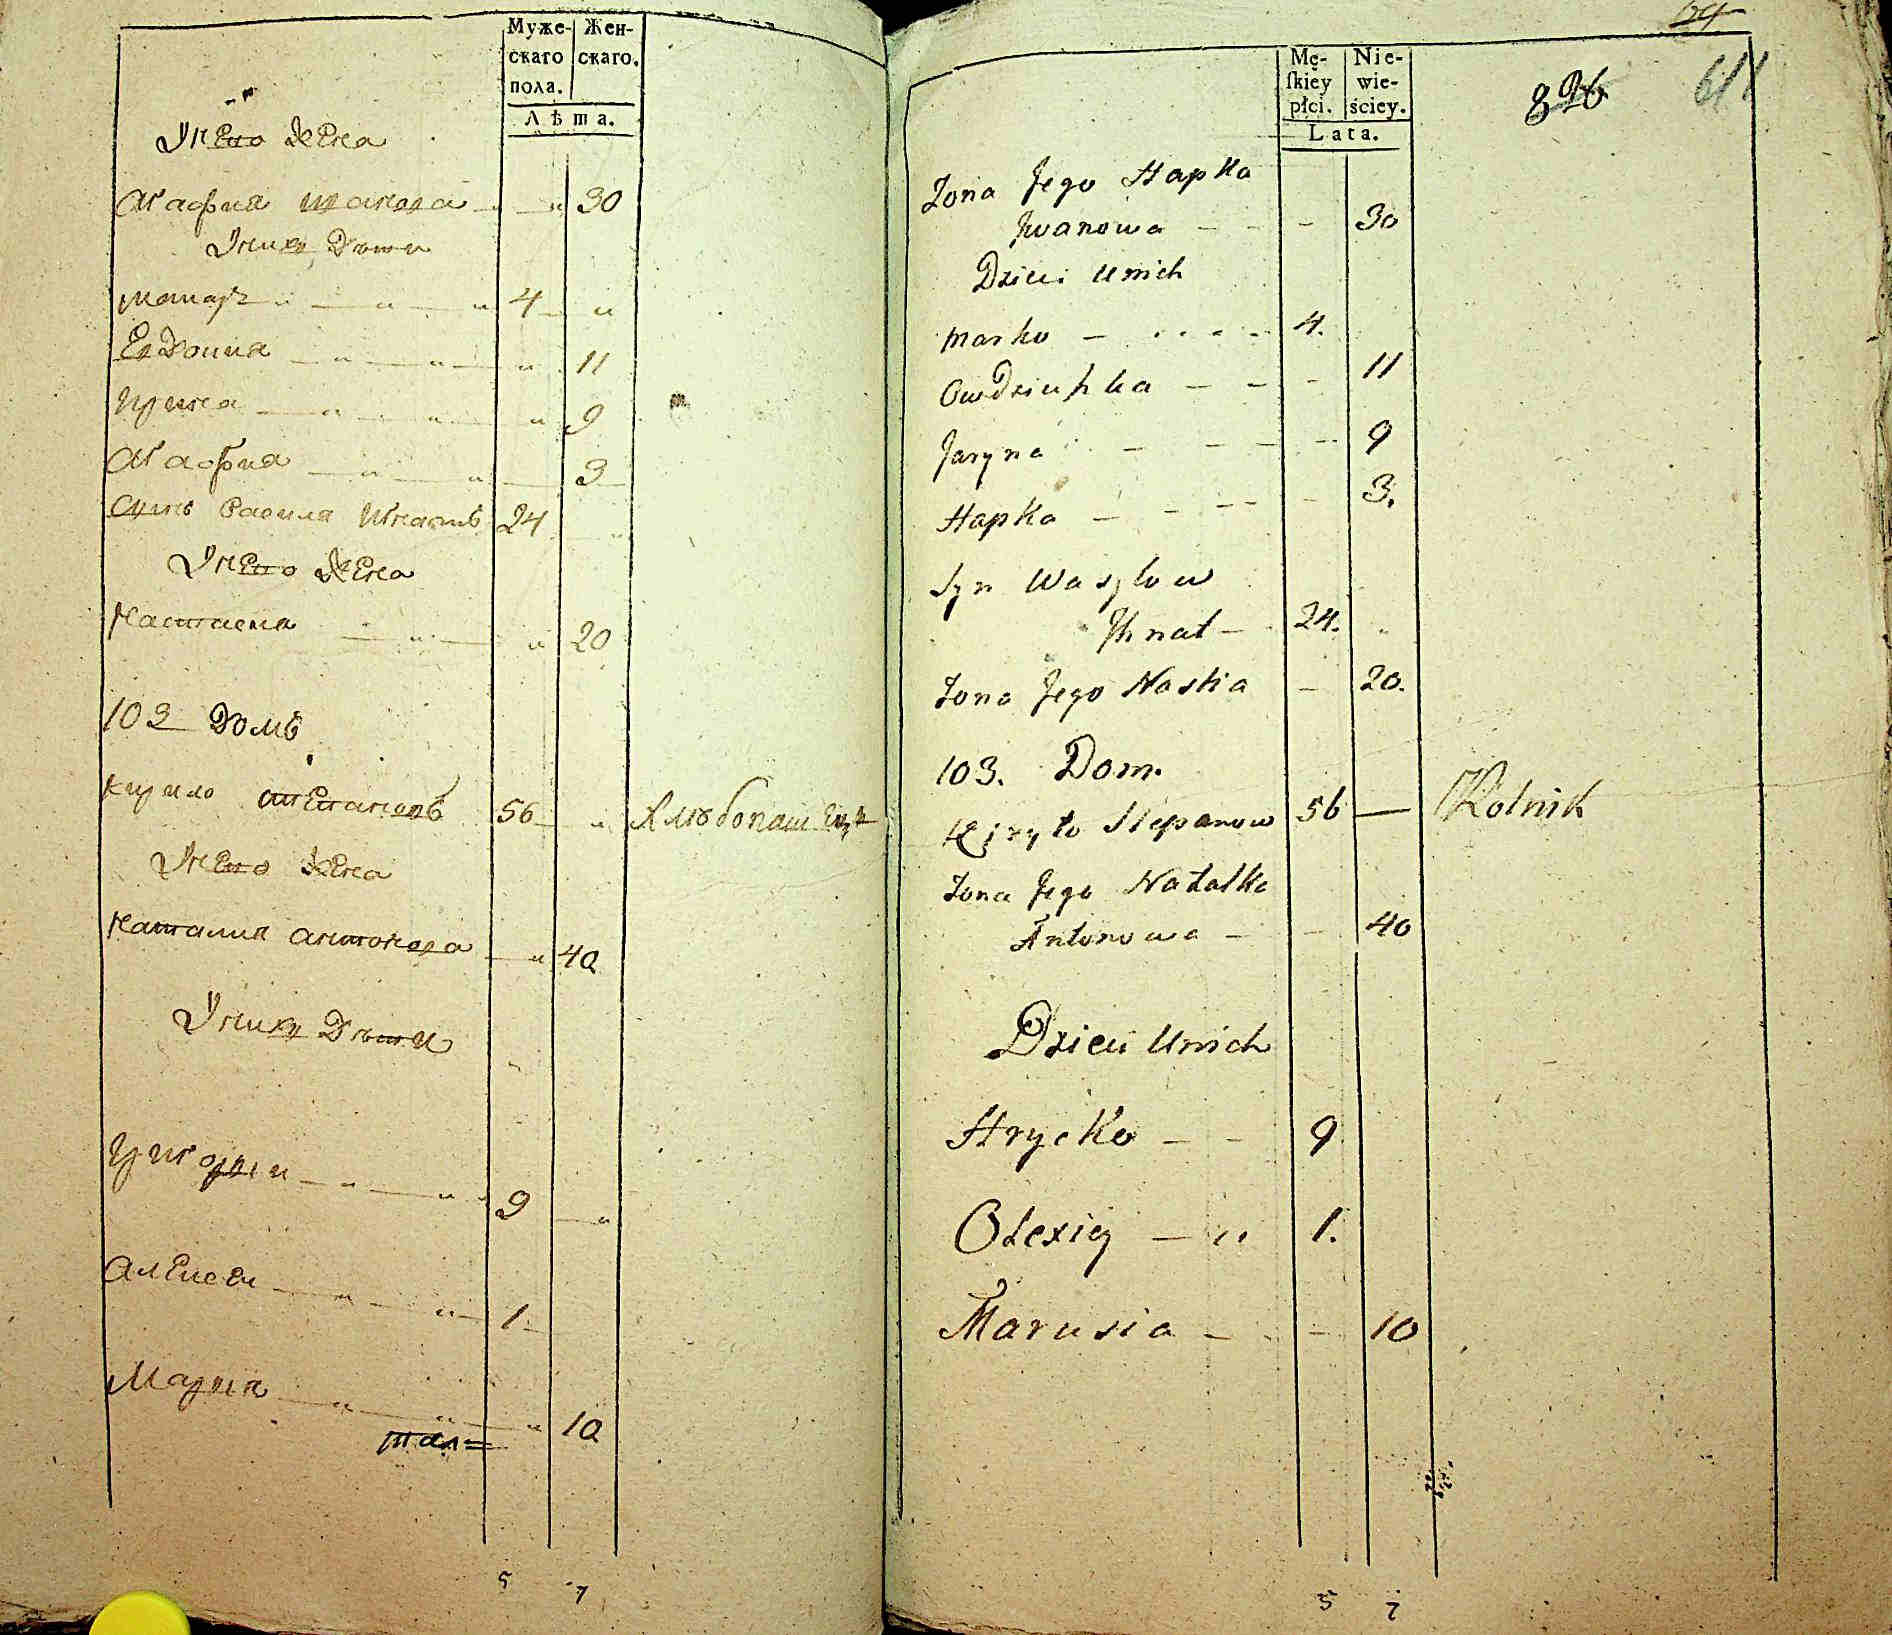 Муже- Жен-
скаго скаго.
пола.
Лѣта.
У него жена
Агафия Иванова 30
У них дѣти
Марко 4
Евдокия 11
Ирина 9
Агафия 3
Сынъ Василя Игнатъ 24
У него жена
Настасия 20
103 Домъ
Кирило Степановъ 56 Хлѣбопашецъ
У него жена
Наталия Антонова 40
У них дѣти
Григорий 9
Алексей 1
Мария 10
5 7
Mę- Nie-
ſkiey wie-
płci. ściey.
Lata.
896
611
Zona Jego Hapka
Jwanowa 30
Dzieci Unich
Marko 4.
Owdziuhka 11
Jaryna 9
Hapka 3.
Syn Wasylow
Jhnat 24.
Zona Jego Nastia 20.
103. Dom.
Kiryło Stepanow 56 Rolnik
Zona Jego Natalka
Antonowa 40
Dzieci Unich
Hrycko 9
Olexiy 1.
Marusia 10
5 7